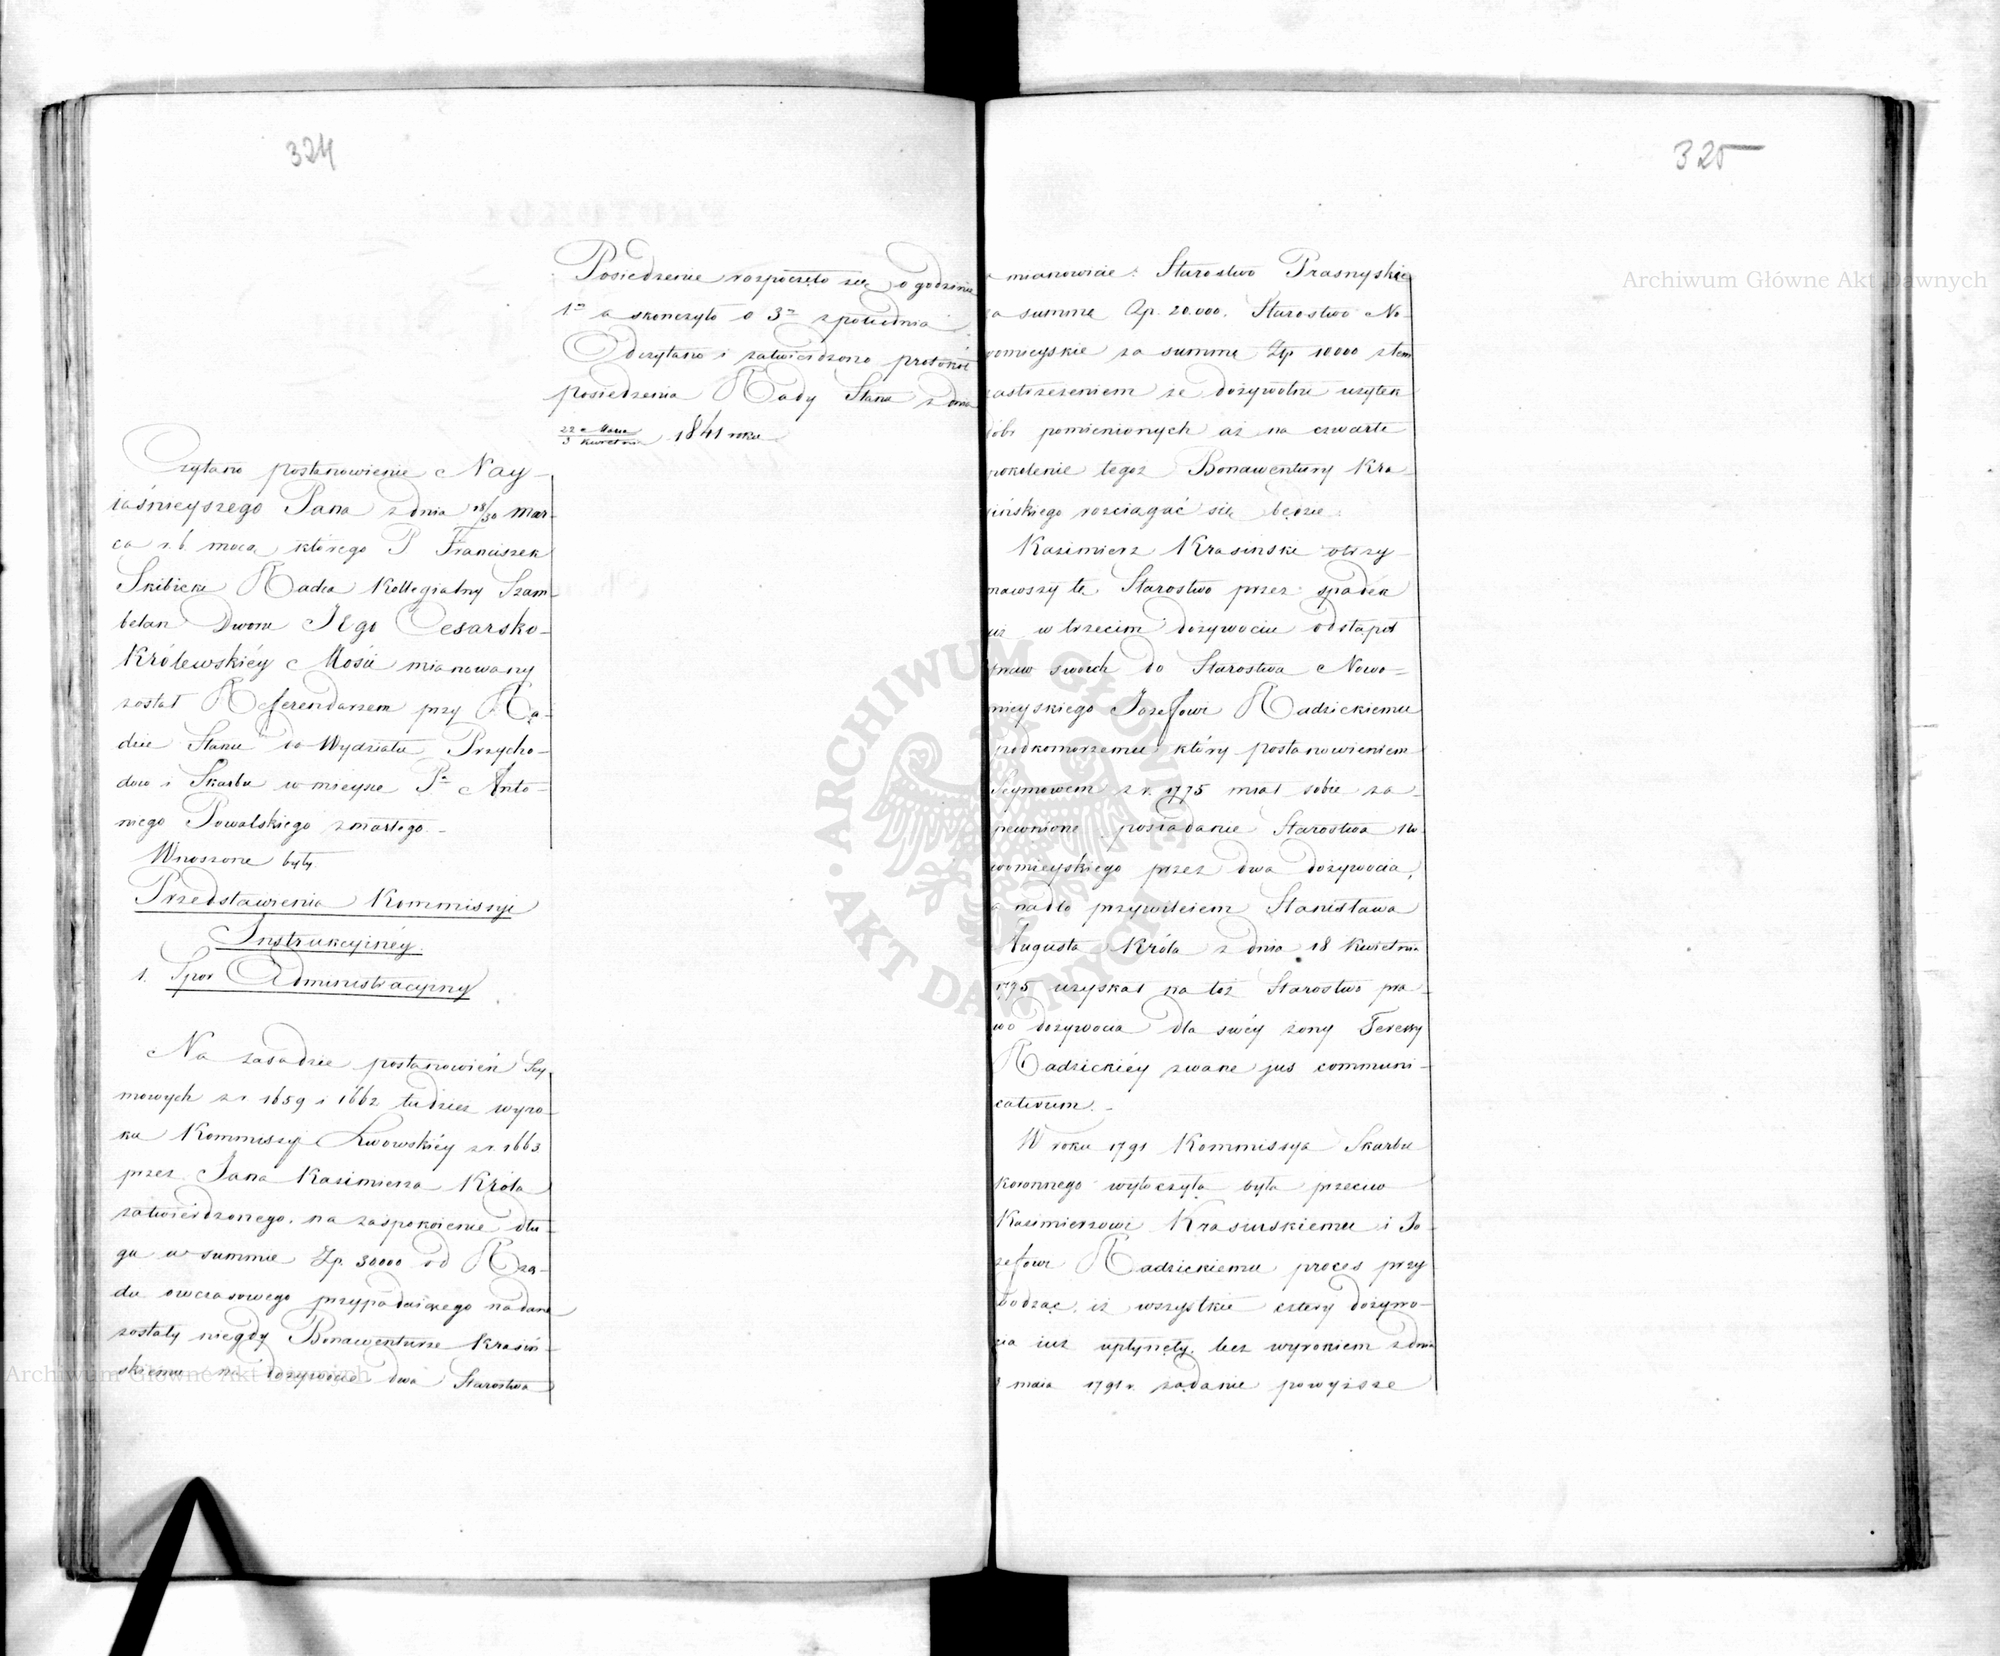 324
Posiedzenie rozpoczęło się o godzinie
1ej a skończyło o 3ej z południa
Odczytano i zatwierdzono protokół
posiedzenia Rady Stanu z dnia
22 Marca
3 Kwietnia 1841 roku
Czytano postanowienie Nay-
iaśnieyszego Pana z dnia 18/30 Mar-
ca r. b. mocą którego P Franciszek
Skibicki Radca Kollegialny Szam-
belan Dworu JEgo Cesarsko-
Królewskiéy Mości mianowany
został Referendarzem przy Ra-
dzie Stanu do Wydziału Przycho-
dów i Skarbu w mieysce Pa Anto-
niego Powalskiego zmarłego.-
Wnoszone były
Przedstawienia Kommissyi
Instrukcyinéy.
1. Spor Administracyiny
Na zasadzie postanowień Sey-
mowych z r. 1659 i 1662 tudzież wyro-
ku Kommissyi Lwowskiéy z r. 1663
przez Jana Kazimierza Króla
zatwierdzonego, na zaspokoienie dłu-
gu w summie Zp. 30000 od Rzą-
du owczasowego przypadaiącego nadane
zostały niegdy Bonawenturze Krasiń-
skiemu na dożywocie dwa Starostwa
325
a mianowicie: Starostwo Prasnyskie
za summę Zp. 20.000. Starostwo No-
womieyskie za summę Zp 10000 z tem
zastrzeżeniem że dożywotni użytek
dóbr pomienionych aż na czwarte
pokolenie tegoż Bonawentury Kra-
sińskiego rozciągać się będzie.
Kazimierz Krasiński otrzy-
mawszy te Starostwo przez spadek
już w trzecim dożywociu odstąpił
praw swoich do Starostwa Nowo-
mieyskiego Józefowi Radzickiemu
podkomorzemu który postanowieniem
Seymowem z r. 1775 miał sobie za-
pewnione posiadanie Starostwa No-
womieyskiego przez dwa dożywocia,
a nadto przywileiem Stanisława
Augusta Króla z dnia 18 Kwietnia
1795 uzyskał na toż Starostwo pra-
wo dożywocia dla swéy żony Teressy
Radzickiéy zwane jus communi-
cativum.-
W roku 1791 Kommissya Skarbu
Koronnego wytoczyła była przeciw
Kazimierzowi Krasińskiemu i Jó-
zefowi Radzickiemu proces przy
wodząc, iż wszystkie cztery dożywo-
cia iuż upłynęły, lecz wyrokiem z dnia
maia 1791 r. żądanie powyższe
Archiwum Główne Akt Dawnych
Archiwum Główne Akt Dawnych
ARCHIWUM GŁÓWNE AKT DAWNYCH